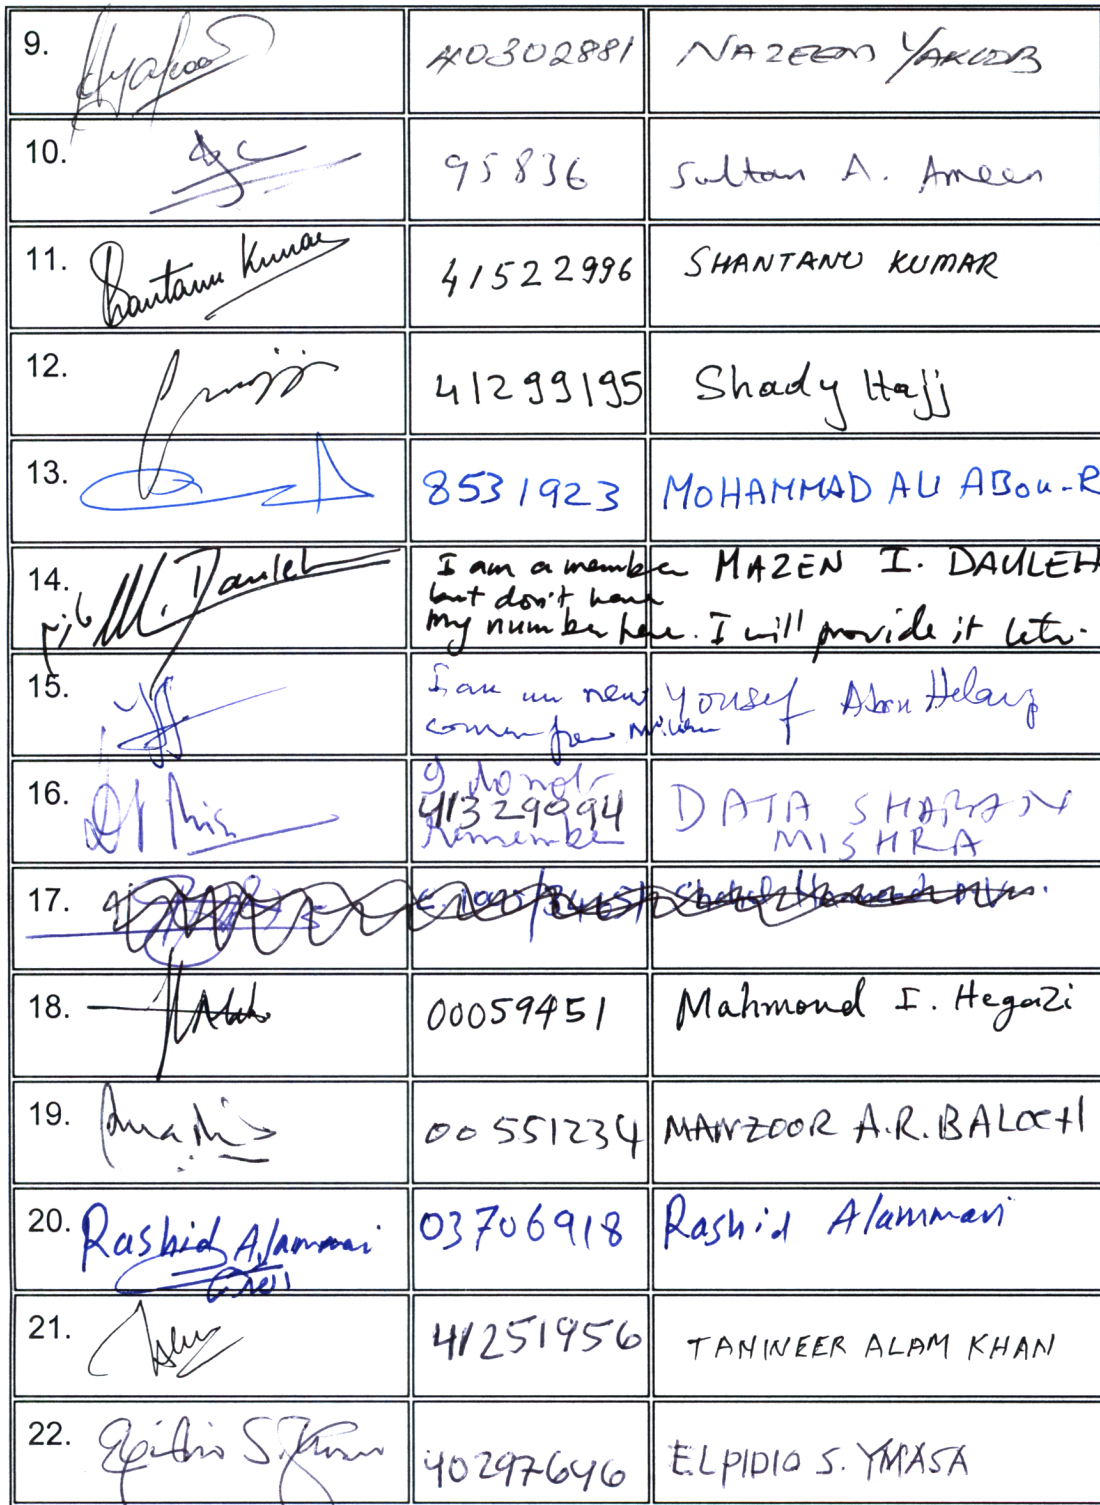 9. 40302881 NAZEEM YAKUB
10. 95836 Sultan A. Ameen
11. Santanu Kumar 41522996 SHANTANU KUMAR
12. 41299195 Shady Hajj
13. 8531923 MOHAMMAD ALI ABOU-R
14. M. Dauleh I am a member MAZEN I. DAULEH
but don't have
my number here. I will provide it letr.
15. I am un new Yousef Abou Helaiy
comer from
16. I do not DATA SHARAN
41329994
Remember MISHRA
17.
18. 00059451 Mahmoud I. Hegazi
19. 00551234 MANZOOR A.R. BALOCH
20. Rashid Alammari 03706918 Rashid Alammari
21. 41251956 TANWEER ALAM KHAN
22. 40297646 ELPIDIO S. YMASA